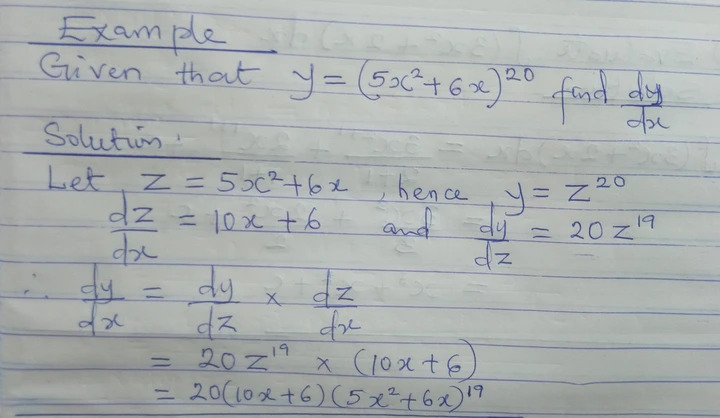 Example
Given that y = (5x²+6x)²⁰ find dy/dx
Solution:
Let z = 5x²+6x, hence y = z²⁰
dz/dx = 10x + 6 and dy/dz = 20z¹⁹
∴ dy/dx = dy/dz × dz/dx
= 20z¹⁹ × (10x+6)
= 20(10x+6)(5x²+6x)¹⁹